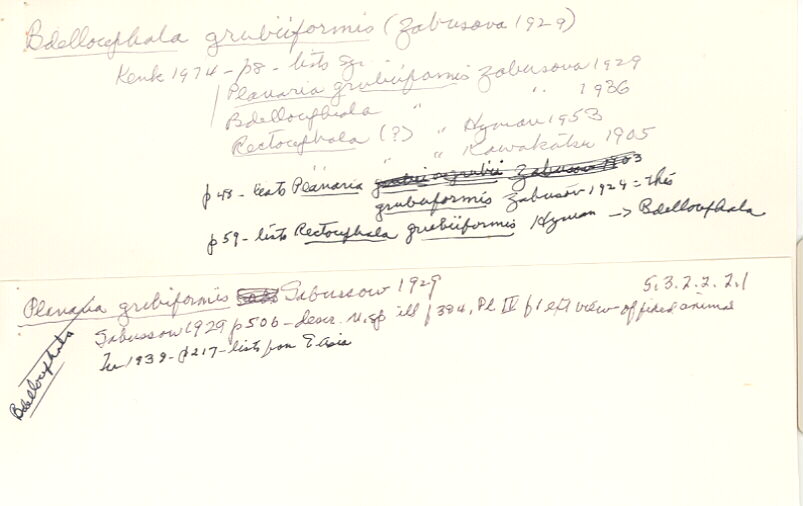 Bdellocephala grubiiformis (Zabusova 1929)
Kenk 1974 - p8 - lists
Planaria grubiiformis Zabusova 1929
Bdellocephala " " 1936
Rectocephala (?) " Hyman 1953
" " " Kawakatsu 1905
p 48 - lists Planaria
grubiiformis Zabusov 1929 = this
p 59 - lists Rectocephala grubiiformis Hyman → Bdellocephala
Planaria grubiformis Sabussow 1929 5.3.2.2.2.1
Sabussow 1929 p 506 - descr. n.sp ill p 394, Pl. IV f 1 ext view - of fixed animal
Tu 1939 - p217 - lists from E Asia
Bdellocephala